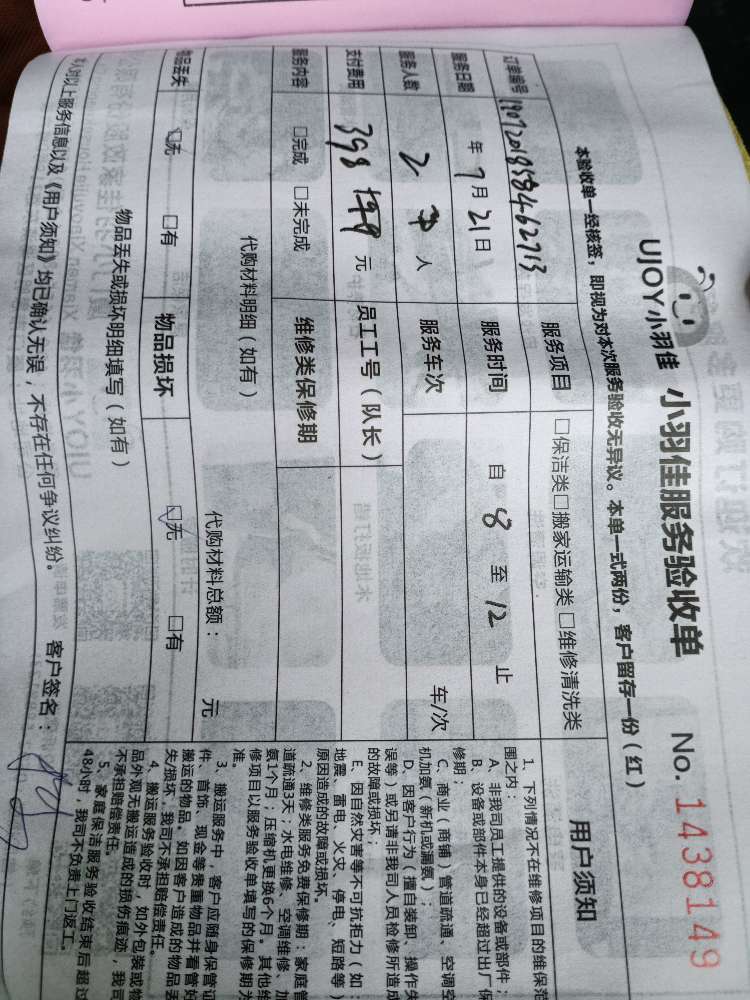 UJOY小羽佳 小羽佳服务验收单 No. 1438149
本验收单一经核签，即视为对本次服务验收无异议。本单一式两份，客户留存一份（红）
订单编号 1907201858462713 服务项目 □保洁类□搬家运输类□维修清洗类
服务日期 年 7 月 21 日 服务时间 自 8 至 12 止
服务人数 2 人 服务车次 车/次
支付费用 398 元 员工工号（队长）
服务内容 □完成 □未完成 维修类保修期
代购材料明细（如有） 代购材料总额： 元
物品丢失 □无 □有 物品损坏 □无 □有
物品丢失或损坏明细填写（如有）
以上服务信息以及《用户须知》均已确认无误，不存在任何争议纠纷。 客户签名：
用户须知
1、下列情况不在维修项目的维保范
围之内：
A、非我司员工提供的设备或部件；
B、设备或部件本身已经超过出厂保
修期；
C、商业（商铺）管道疏通、空调空
机加氨（新机或漏氨）；
D、因客户行为（擅自装卸、操作失
误等）或另请非我司人员检修所造成
的故障或损坏；
E、因自然灾害等不可抗拒力（如：
地震、雷电、火灾、停电、短路等）
原因造成的故障或损坏。
2、维修类服务免费保修期：家庭管
道疏通3天；水电维修、空调维修、加
氨1个月；压缩机更换6个月。其他维
修项目以服务验收单填写的保修期为
准。
3、搬运服务中，客户应随身保管证
件、首饰、现金等贵重物品并看管好
搬运的物品。如因客户造成的物品丢
失损坏，我司不承担赔偿责任。
4、搬运服务验收时，如外包装或物
品外观无搬运造成的损伤痕迹，我司
不承担赔偿责任。
5、家庭保洁服务验收结束后超过
48小时，我司不负责上门返工。